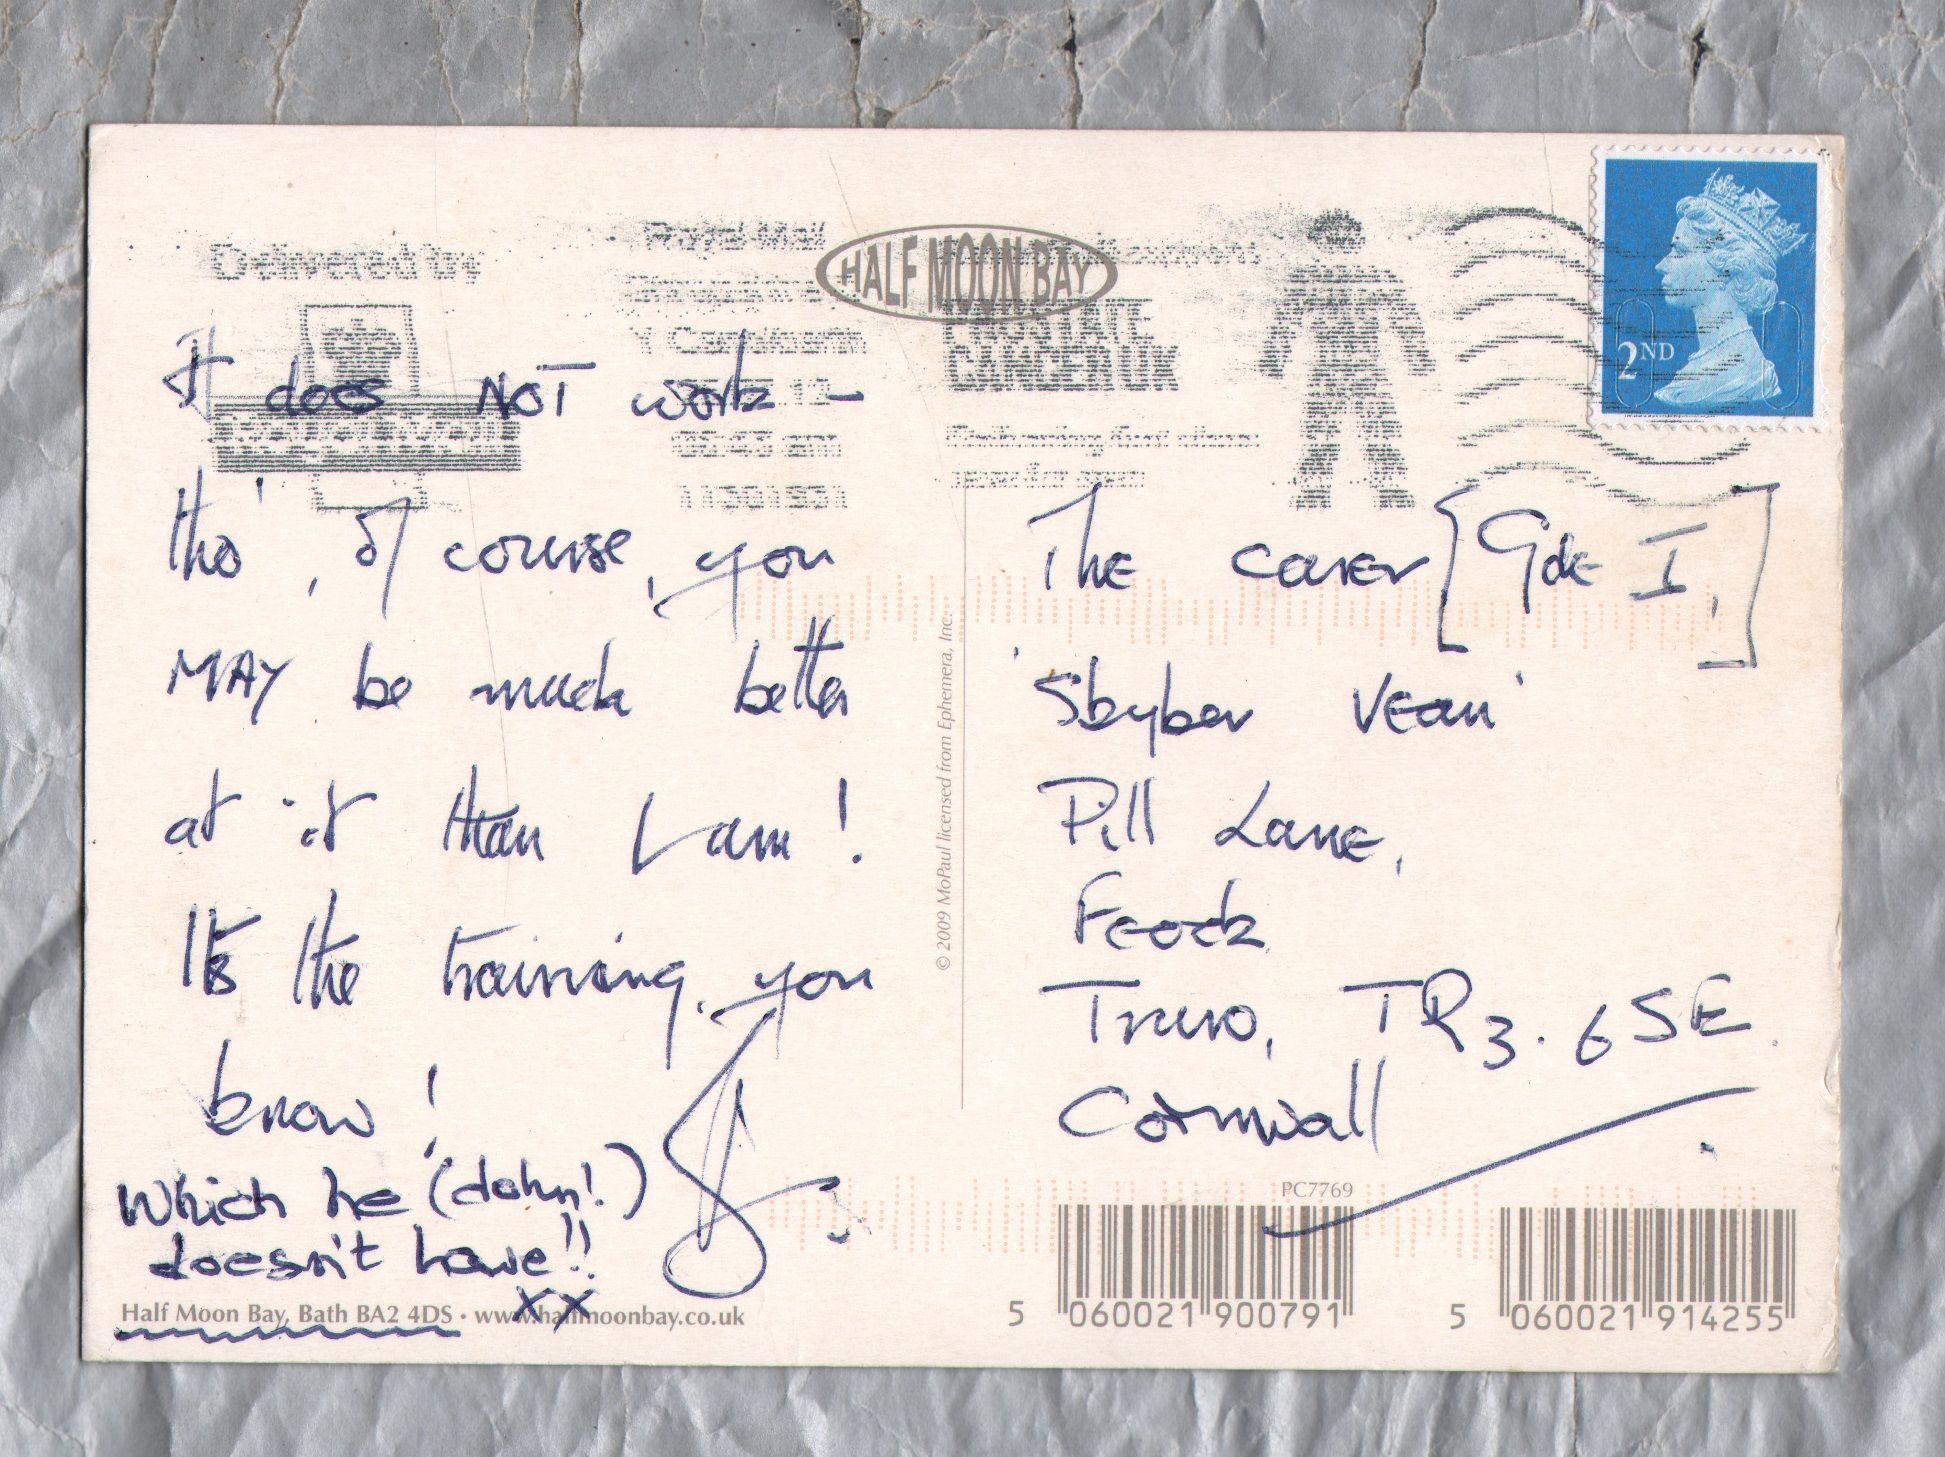 HALF MOON BAY
Delivered by
Royal Mail
2ND
CANCER UK
It does NOT work –
tho', of course, you
MAY be much better
at it than I am!
It's the training, you
know!
Which he (John!)
doesn't have!!
xx
The carer [Gde I,]
'Skyber Vean'
Pill Lane,
Feock
Truro, TR3. 6SE.
Cornwall
© 2009 MoPaul licensed from Ephemera, Inc.
PC7769
Half Moon Bay, Bath BA2 4DS · www.halfmoonbay.co.uk
5 060021 900791
5 060021 914255